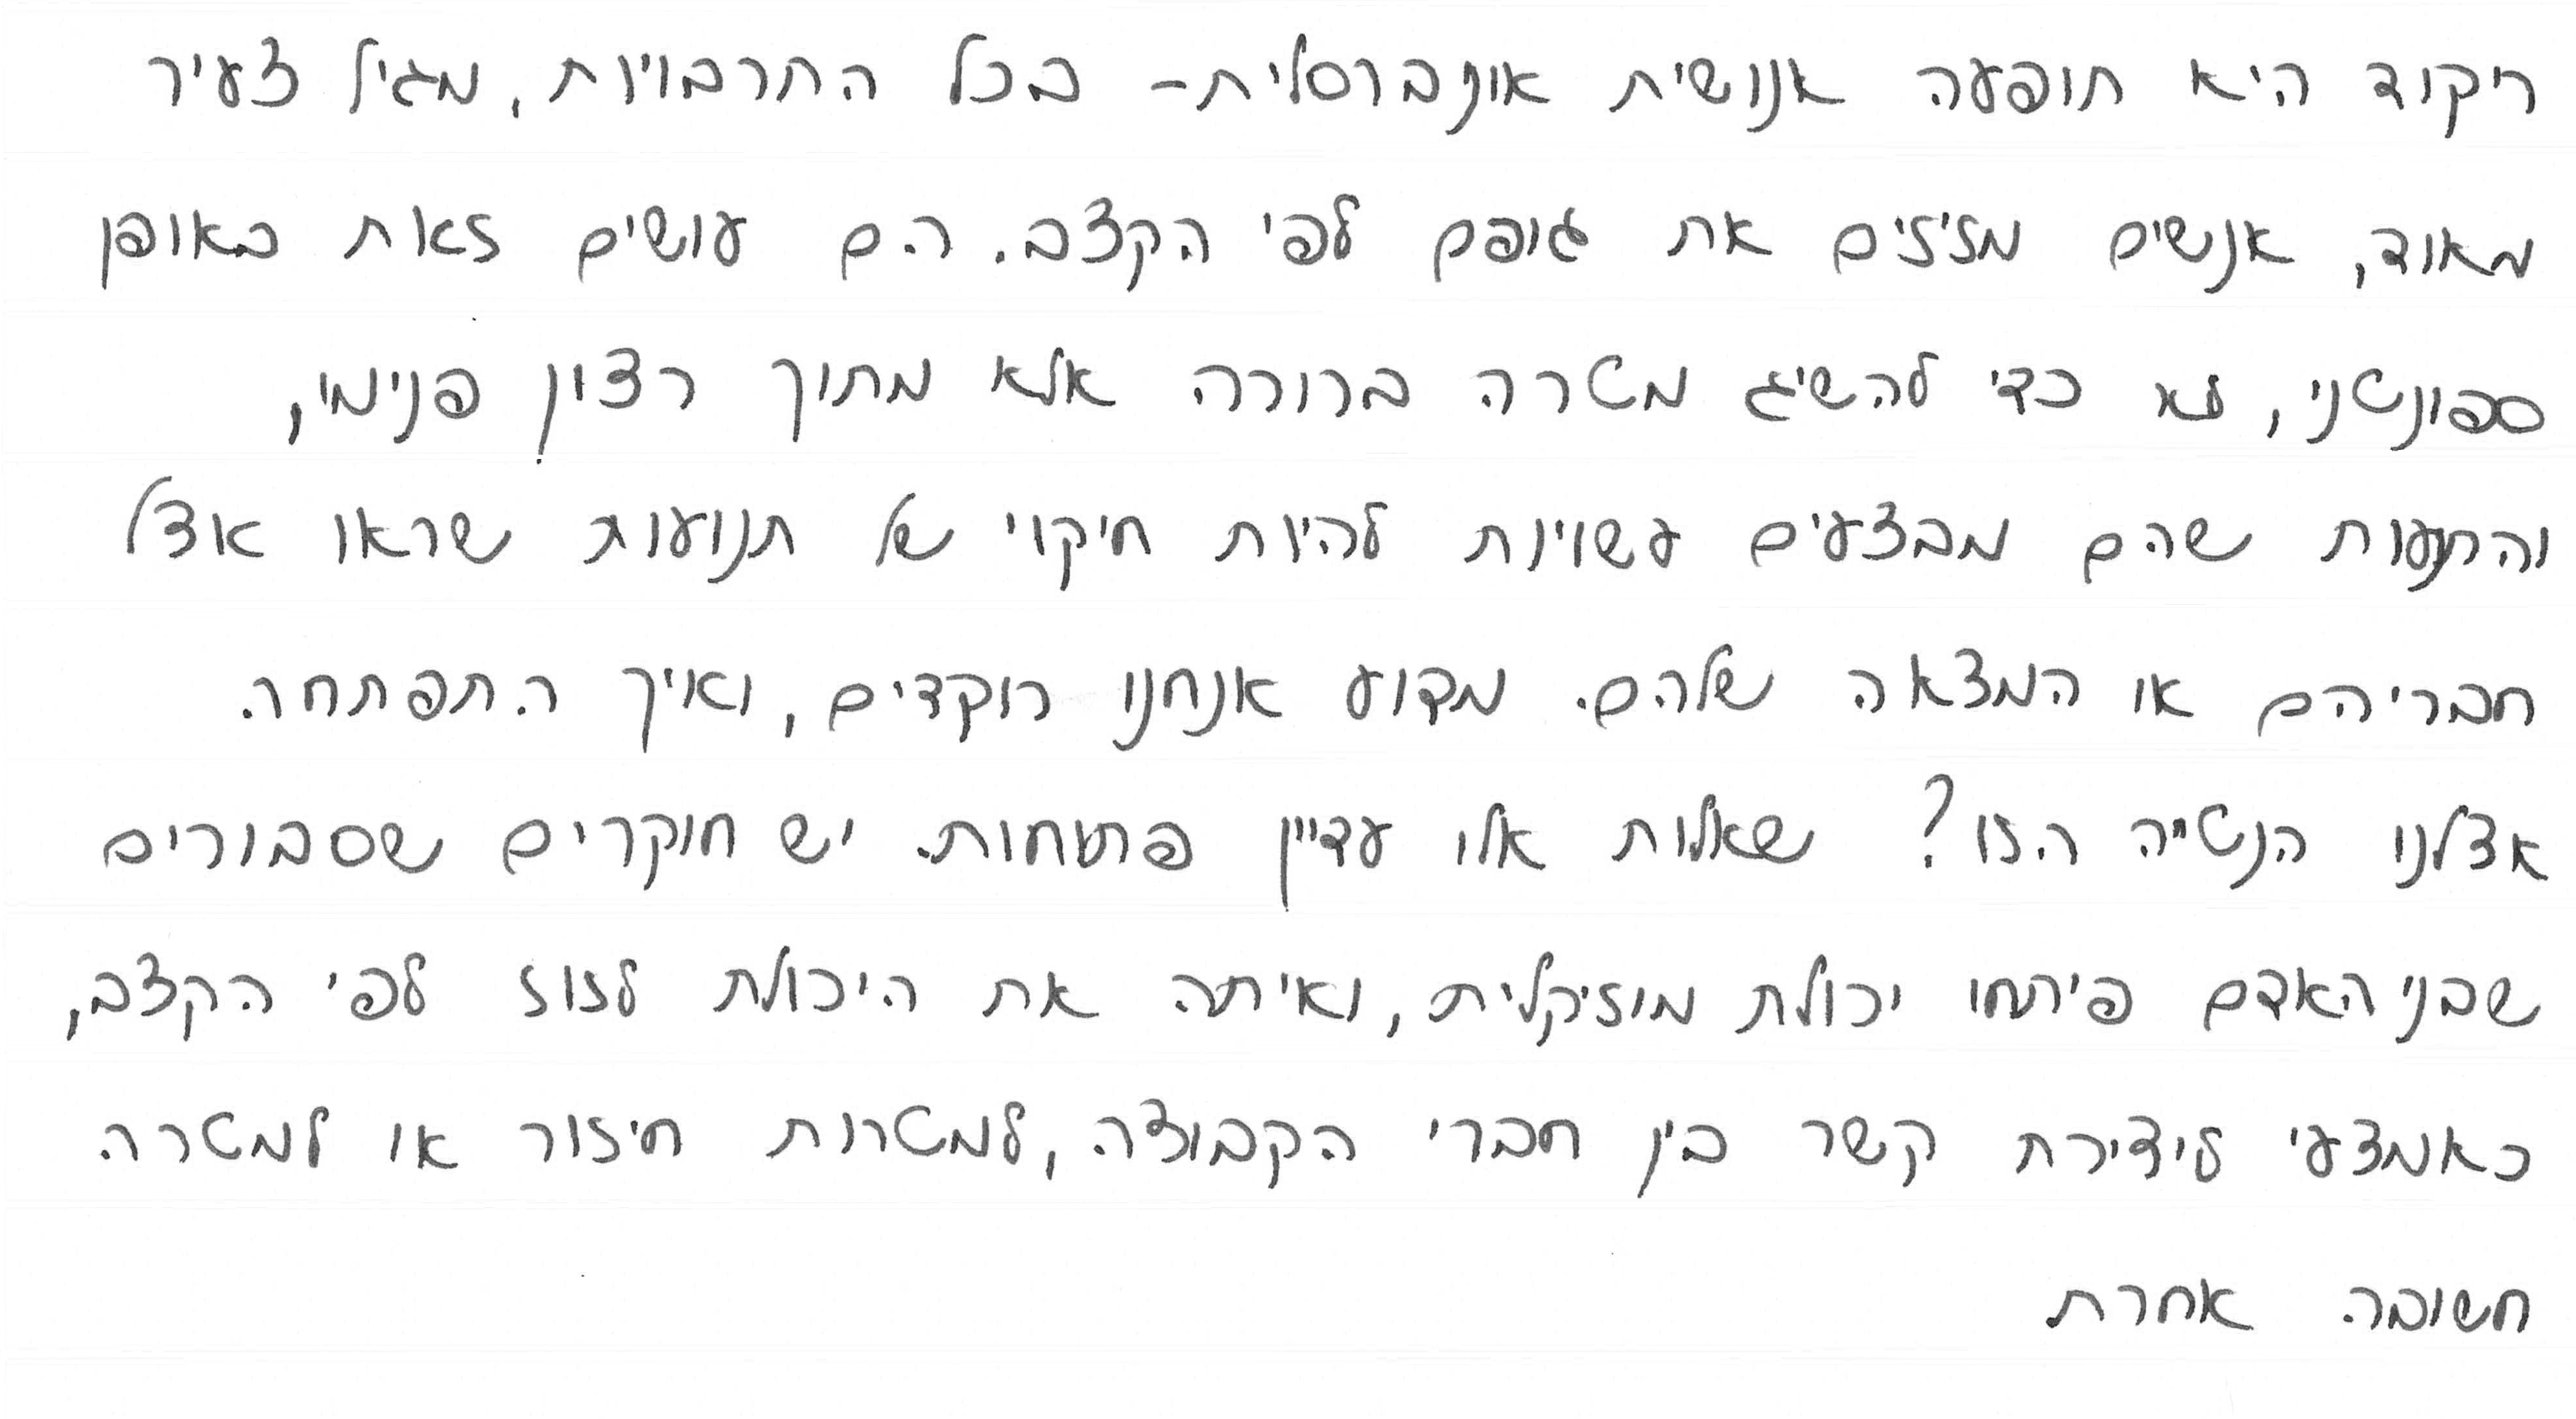 ריקוד היא תופעה אנושית אונברסלית- בכל התרבויות, מגיל צעיר
מאוד, אנשים מזיזים את גופם לפי הקצב. הם עושים זאת באופן
ספונטני, לא כדי להשיג מטרה ברורה אלא מתוך רצון פנימי,
והתנועות שהם מבצעים עשויות להיות חיקוי של תנועות שראו אצל
חבריהם או המצאה שלהם. מדוע אנחנו רוקדים, ואיך התפתחה
אצלנו הנטייה הזו? שאלות אלו עדיין פתוחות. יש חוקרים שסבורים
שבני האדם פיתחו יכולת מוזיקלית, ואיתה את היכולת לזוז לפי הקצב,
כאמצעי ליצירת קשר בין חברי הקבוצה, למטרות חיזור או למטרה
חשובה אחרת